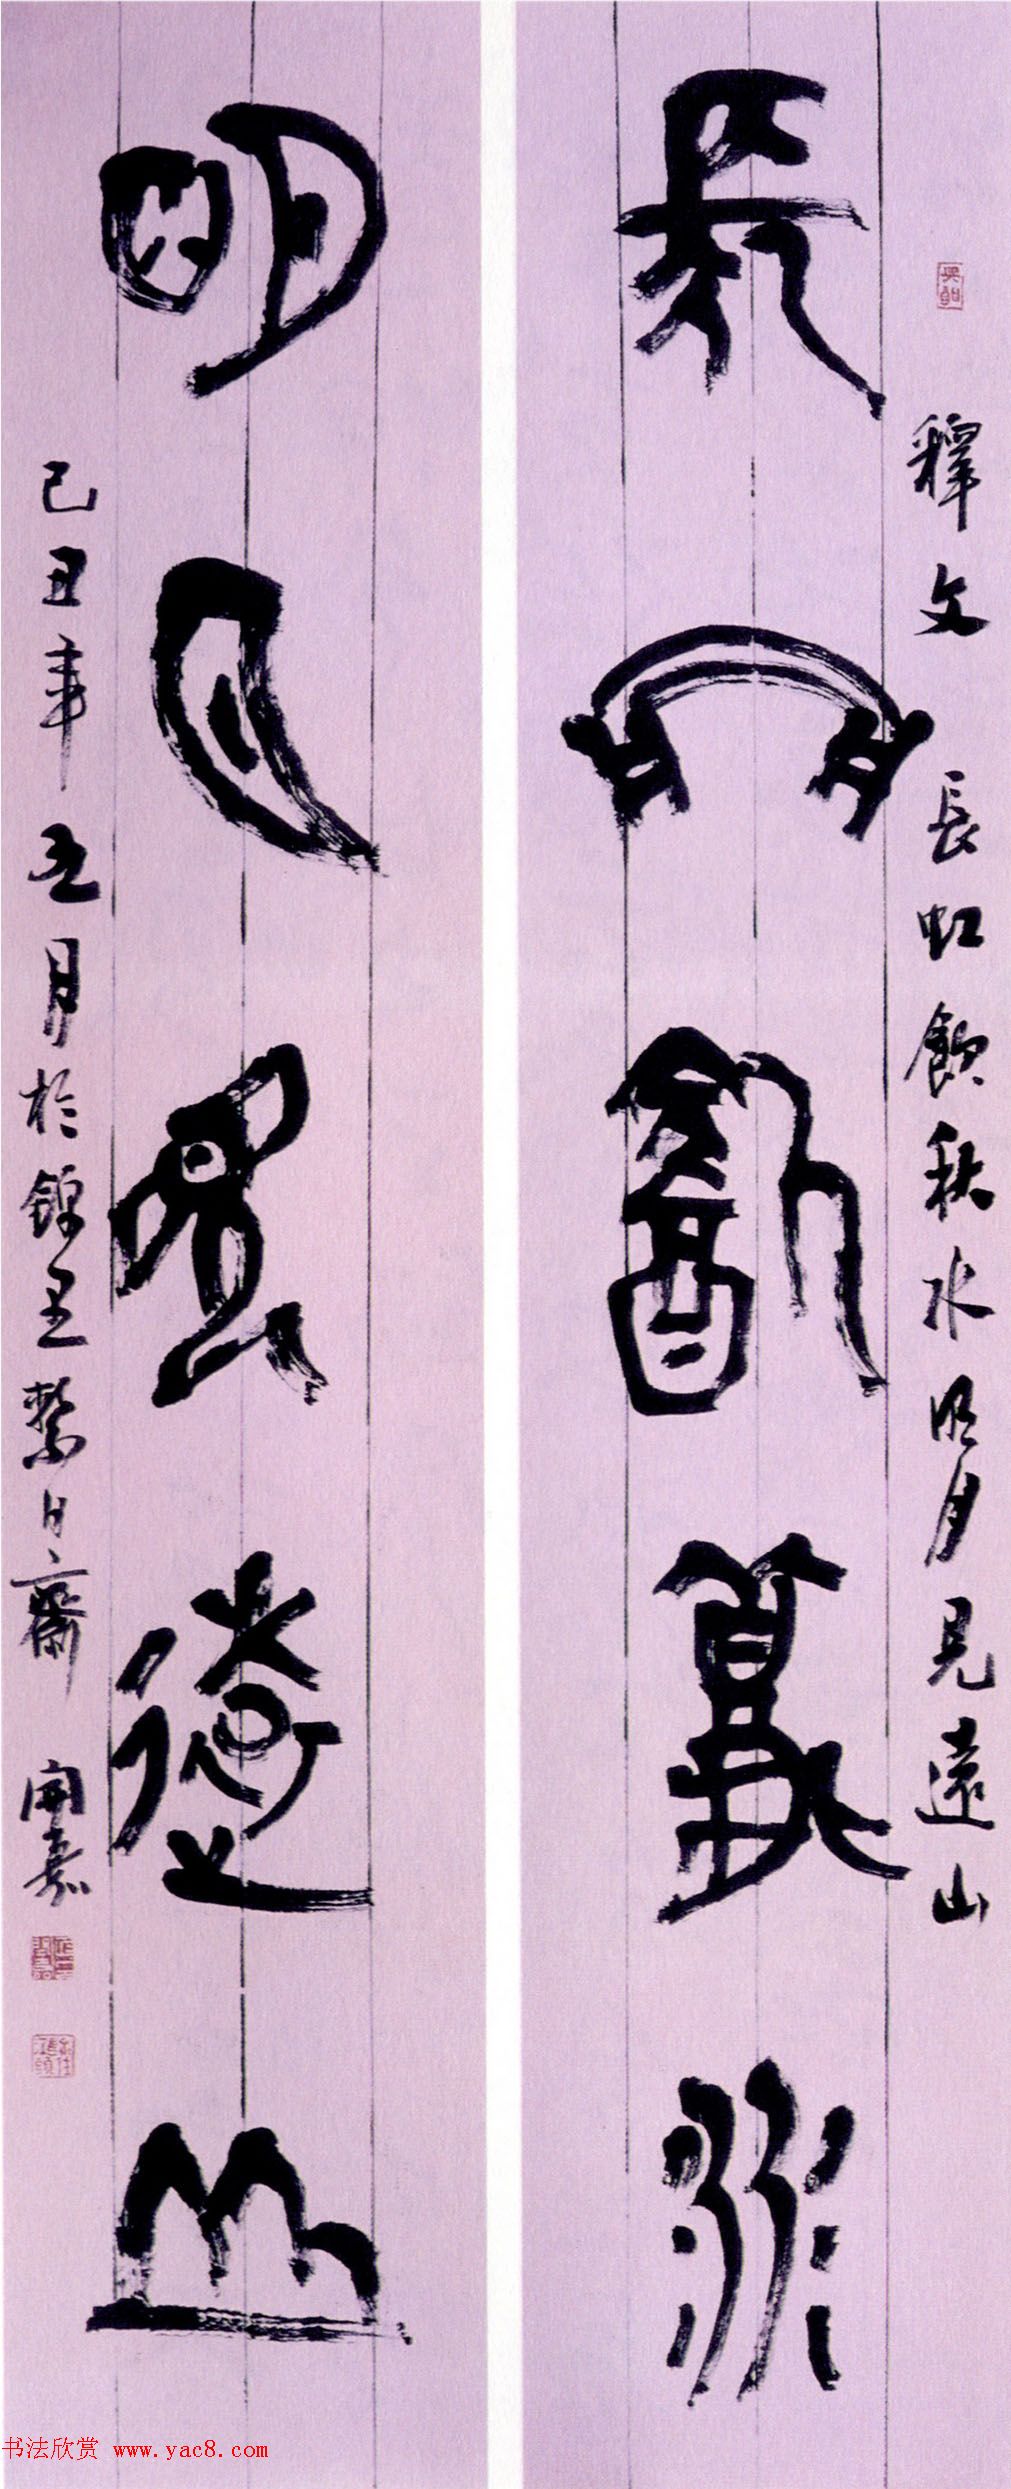 長虹飲秋水
釋文 長虹飲秋水明月見遠山
明月見遠山
己丑年五月於錦里
齋 開嘉
书法欣赏 www.yac8.com